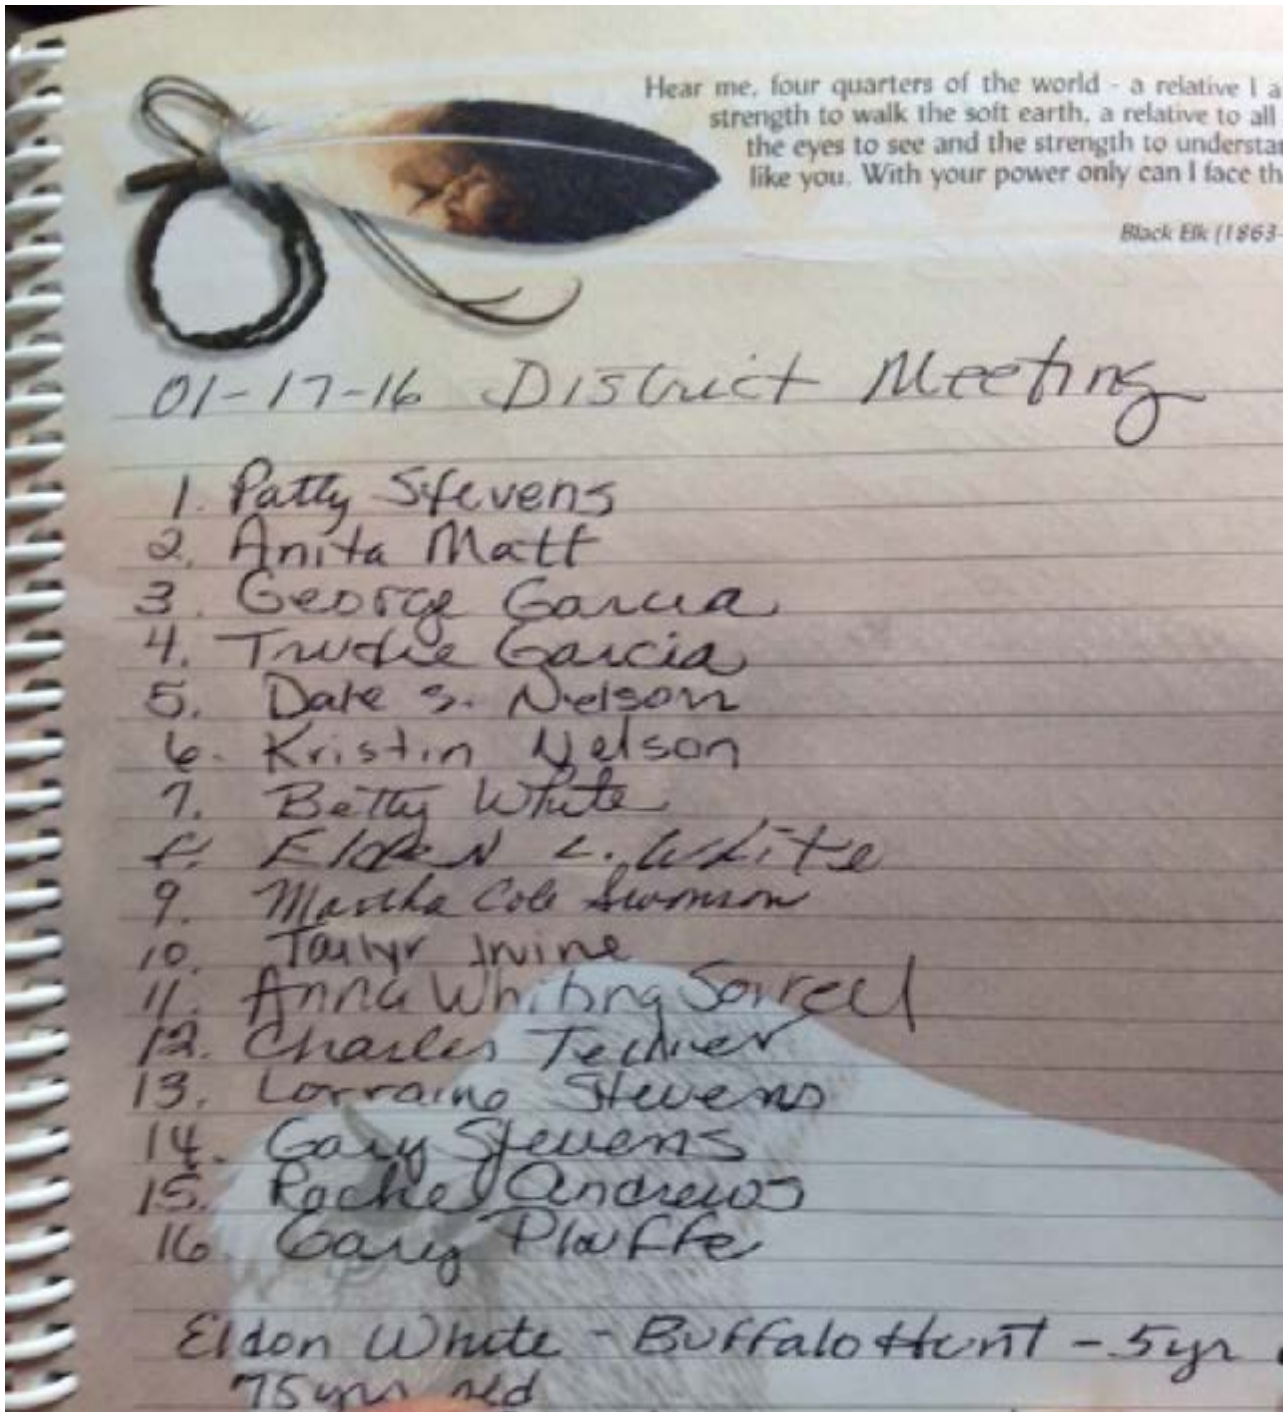 Hear me, four quarters of the world - a relative I a
strength to walk the soft earth, a relative to all
the eyes to see and the strength to understan
like you. With your power only can I face th
Black Elk (1863-
01-17-16 District Meeting
1. Patty Stevens
2. Anita Matt
3. George Garcia
4. Trudie Garcia
5. Dale S. Nelson
6. Kristin Nelson
7. Betty White
8. Elden L. White
9. Martha Cole Swanson
10. Tailyr Irvine
11. Anna Whiting Sorrell
12. Charles Tellier
13. Lorraine Stevens
14. Gary Stevens
15. Rachel Andrews
16. Gary Plouffe
Eldon White - Buffalo Hunt - 5yr
75 yrs old